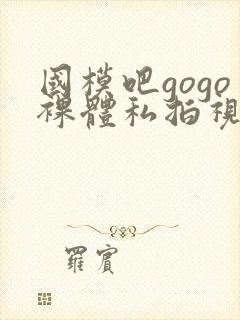 國模吧gogo
裸體私拍視
羅賓